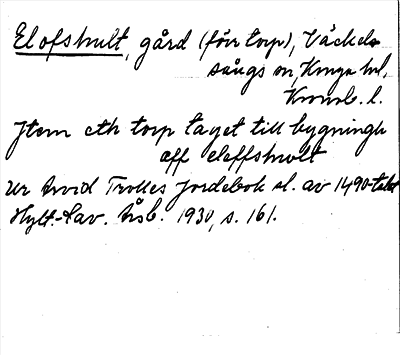 Elofshult, gård (förr torp), Väckel-
sångs sn, Kinga hd,
Kronob. l.
Jtem eth torp taget till bygningh
aff eleffshwlt
Ur Arvid Trolles Jordebok sl. av 1490-talet
Hylt.-Cav. Årsb. 1930, s. 161.